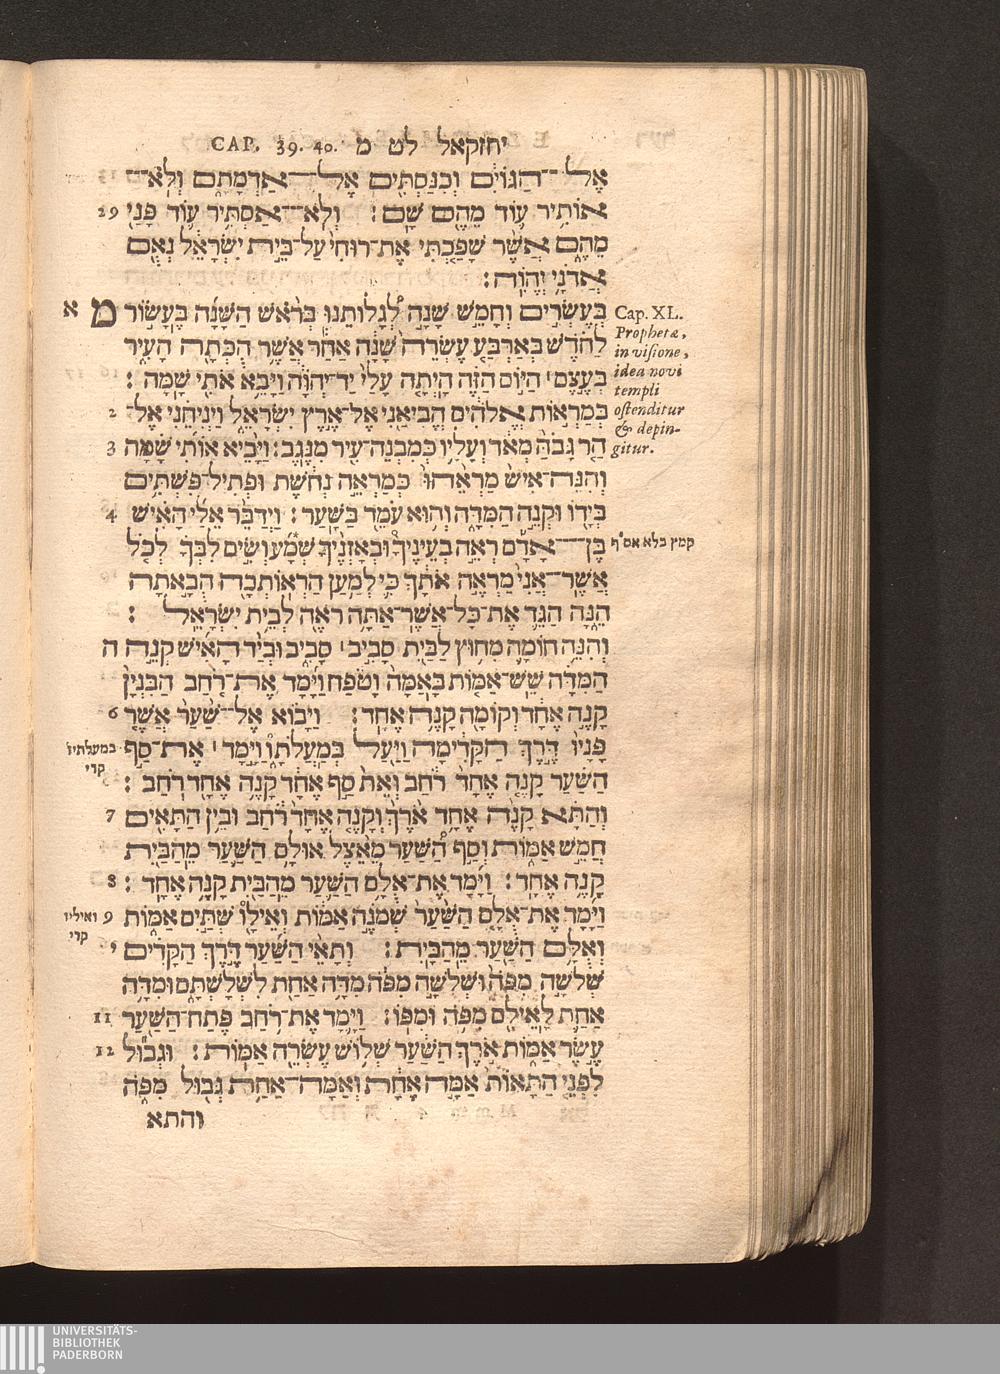 CAP. 39. 40. יחזקאל לט מ
אֶל־הַגּוֹיִם וְכִנַּסְתִּים אֶל־אַדְמָתָם וְלֹא־
אוֹתִיר עוֹד מֵהֶם שָׁם׃ וְלֹא־אַסְתִּיר עוֹד פָּנַי 29
מֵהֶם אֲשֶׁר שָׁפַכְתִּי אֶת־רוּחִי עַל־בֵּית יִשְׂרָאֵל נְאֻם
אֲדֹנָי יְהוִה׃
בְּעֶשְׂרִים וְחָמֵשׁ שָׁנָה לְגָלוּתֵנוּ בְּרֹאשׁ הַשָּׁנָה בֶּעָשׂוֹר מ א
לַחֹדֶשׁ בְּאַרְבַּע עֶשְׂרֵה שָׁנָה אַחַר אֲשֶׁר הֻכְּתָה הָעִיר
בְּעֶצֶם הַיּוֹם הַזֶּה הָיְתָה עָלַי יַד־יְהוָה וַיָּבֵא אֹתִי שָׁמָּה׃
בְּמַרְאוֹת אֱלֹהִים הֱבִיאַנִי אֶל־אֶרֶץ יִשְׂרָאֵל וַיְנִיחֵנִי אֶל־ 2
הַר גָּבֹהַּ מְאֹד וְעָלָיו כְּמִבְנֵה־עִיר מִנֶּגֶב׃ וַיָּבֵיא אוֹתִי שָׁמָּה 3
וְהִנֵּה־אִישׁ מַרְאֵהוּ כְּמַרְאֵה נְחֹשֶׁת וּפְתִיל־פִּשְׁתִּים
בְּיָדוֹ וּקְנֵה הַמִּדָּה וְהוּא עֹמֵד בַּשָּׁעַר׃ וַיְדַבֵּר אֵלַי הָאִישׁ 4
בֶּן־אָדָם רְאֵה בְעֵינֶיךָ וּבְאָזְנֶיךָ שְׁמָע וְשִׂים לִבְּךָ לְכֹל
אֲשֶׁר־אֲנִי מַרְאֶה אֹתָךְ כִּי לְמַעַן הַרְאוֹתְכָה הֻבָאתָה
הֵנָּה הַגֵּד אֶת־כָּל־אֲשֶׁר־אַתָּה רֹאֶה לְבֵית יִשְׂרָאֵל׃
וְהִנֵּה חוֹמָה מִחוּץ לַבַּיִת סָבִיב סָבִיב וּבְיַד הָאִישׁ קְנֵה ה
הַמִּדָּה שֵׁשׁ־אַמּוֹת בָּאַמָּה וָטֹפַח וַיָּמָד אֶת־רֹחַב הַבִּנְיָן
קָנֶה אֶחָד וְקוֹמָה קָנֶה אֶחָד׃ וַיָּבוֹא אֶל־שַׁעַר אֲשֶׁר 6
פָּנָיו דֶּרֶךְ הַקָּדִימָה וַיַּעַל בְּמַעֲלֹתָו וַיָּמָד אֶת־סַף
הַשַּׁעַר קָנֶה אֶחָד רֹחַב וְאֵת סַף אֶחָד קָנֶה אֶחָד רֹחַב׃
וְהַתָּא קָנֶה אֶחָד אֹרֶךְ וְקָנֶה אֶחָד רֹחַב וּבֵין הַתָּאִים 7
חָמֵשׁ אַמּוֹת וְסַף הַשַּׁעַר מֵאֵצֶל אוּלָם הַשַּׁעַר מֵהַבַּיִת
קָנֶה אֶחָד׃ וַיָּמָד אֶת־אֻלָם הַשַּׁעַר מֵהַבַּיִת קָנֶה אֶחָד׃ 8
וַיָּמָד אֶת־אֻלָם הַשַּׁעַר שְׁמֹנֶה אַמּוֹת וְאֵילָו שְׁתַּיִם אַמּוֹת 9
וְאֻלָם הַשַּׁעַר מֵהַבָּיִת׃ וְתָאֵי הַשַּׁעַר דֶּרֶךְ הַקָּדִים י
שְׁלֹשָׁה מִפֹּה וּשְׁלֹשָׁה מִפֹּה מִדָּה אַחַת לִשְׁלָשְׁתָּם וּמִדָּה
אַחַת לָאֵילִם מִפֹּה וּמִפּוֹ׃ וַיָּמָד אֶת־רֹחַב פֶּתַח־הַשַּׁעַר 11
עֶשֶׂר אַמּוֹת אֹרֶךְ הַשַּׁעַר שְׁלוֹשׁ עֶשְׂרֵה אַמּוֹת׃ וּגְבוּל 12
לִפְנֵי הַתָּאוֹת אַמָּה אֶחָת וְאַמָּה־אַחַת גְּבוּל מִפֹּה
והתא
Cap. XL.
Prophetæ,
in visione,
idea novi
templi
ostenditur
& depin-
gitur.
קמץ בלא אס״ף
במעלתיו
קרי
ואיליו
קרי
UNIVERSITÄTS-
BIBLIOTHEK
PADERBORN